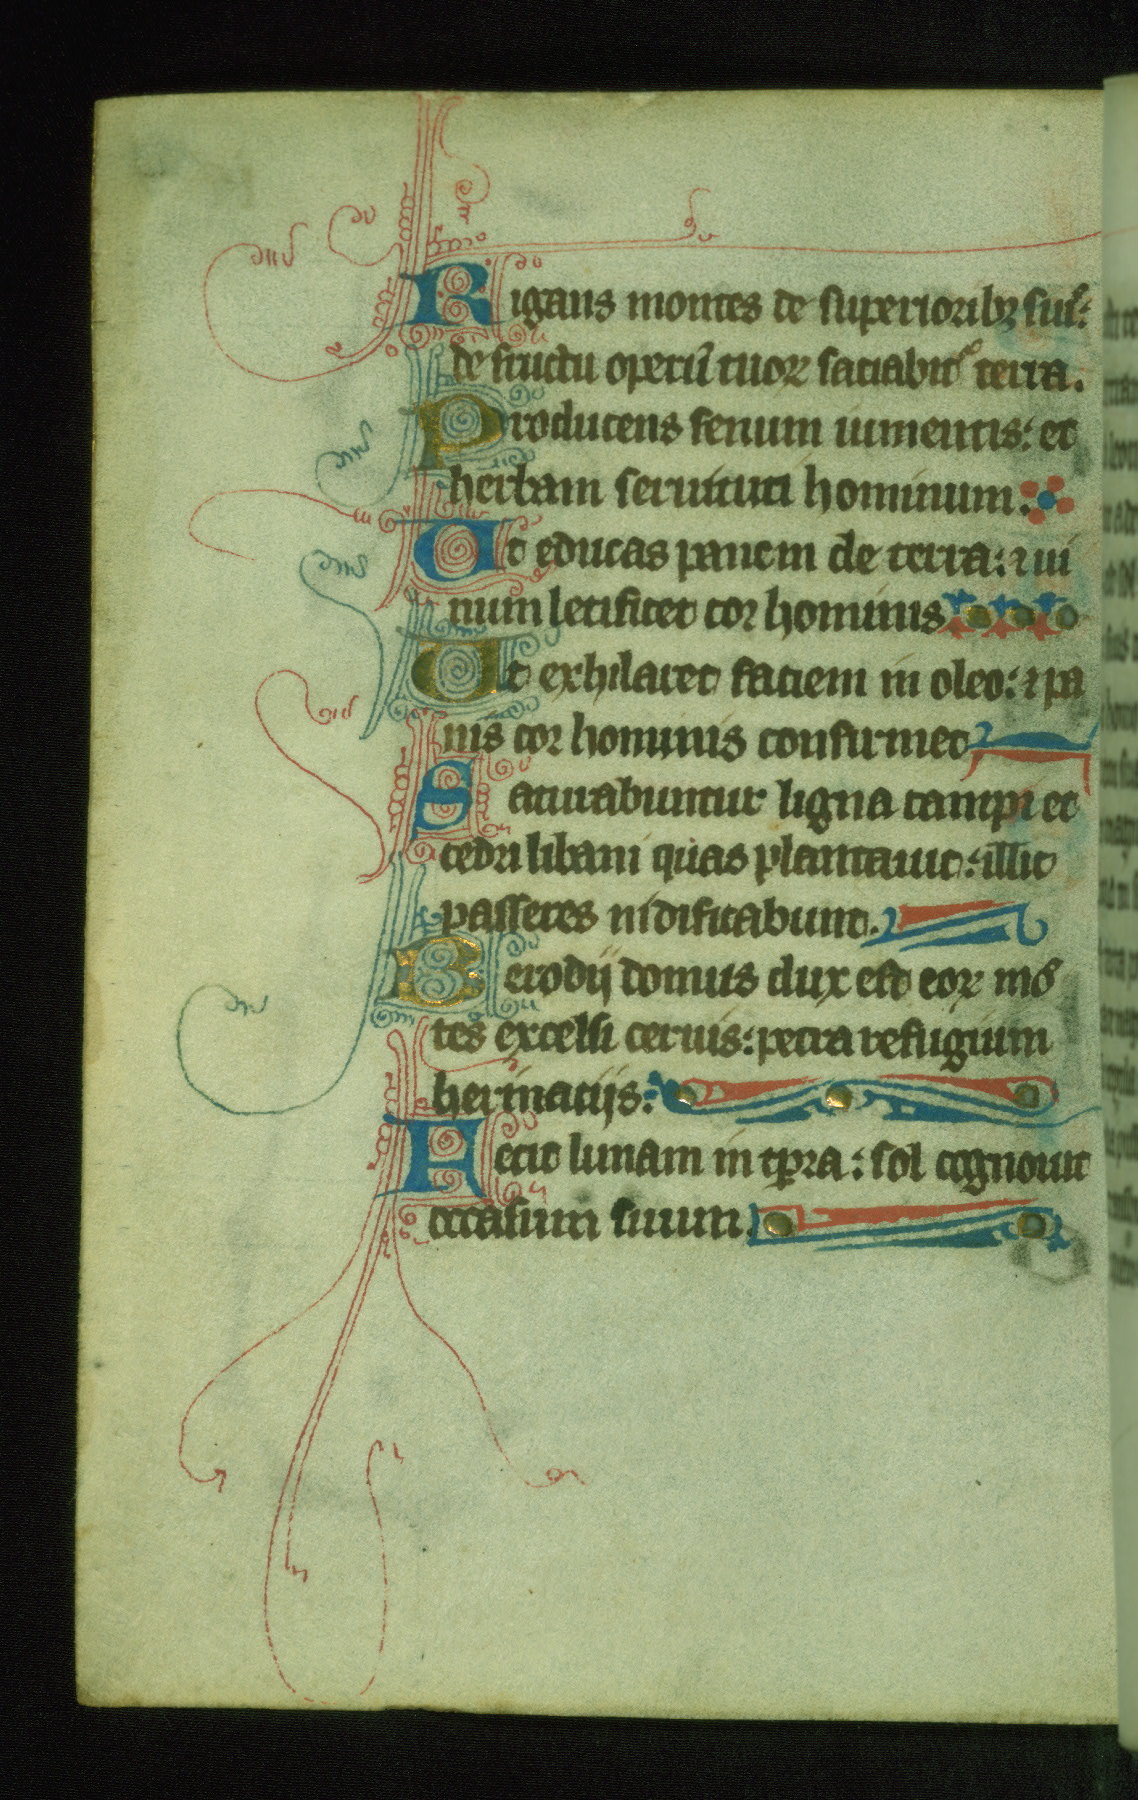 Rigans montes de superioribꝫ suis:
de fructu operũ tuoꝝ saciabit᷑ terra.
Producens fenum iumentis: et
herbam seruituti hominum.
Ut educas panem de terra: ⁊ ui
num letificet cor hominis
Ut exhilaret faciem in oleo: ⁊ pa
nis cor hominis confirmet
Saturabuntur ligna campi et
cedri libani quas plantauit: illic
passeres nidificabunt.
Herodij domus dux est eoꝝ mõ
tes excelsi ceruis: petra refugium
herinacijs:
Fecit lunam in tꝑra: sol cognouit
occasum suum.